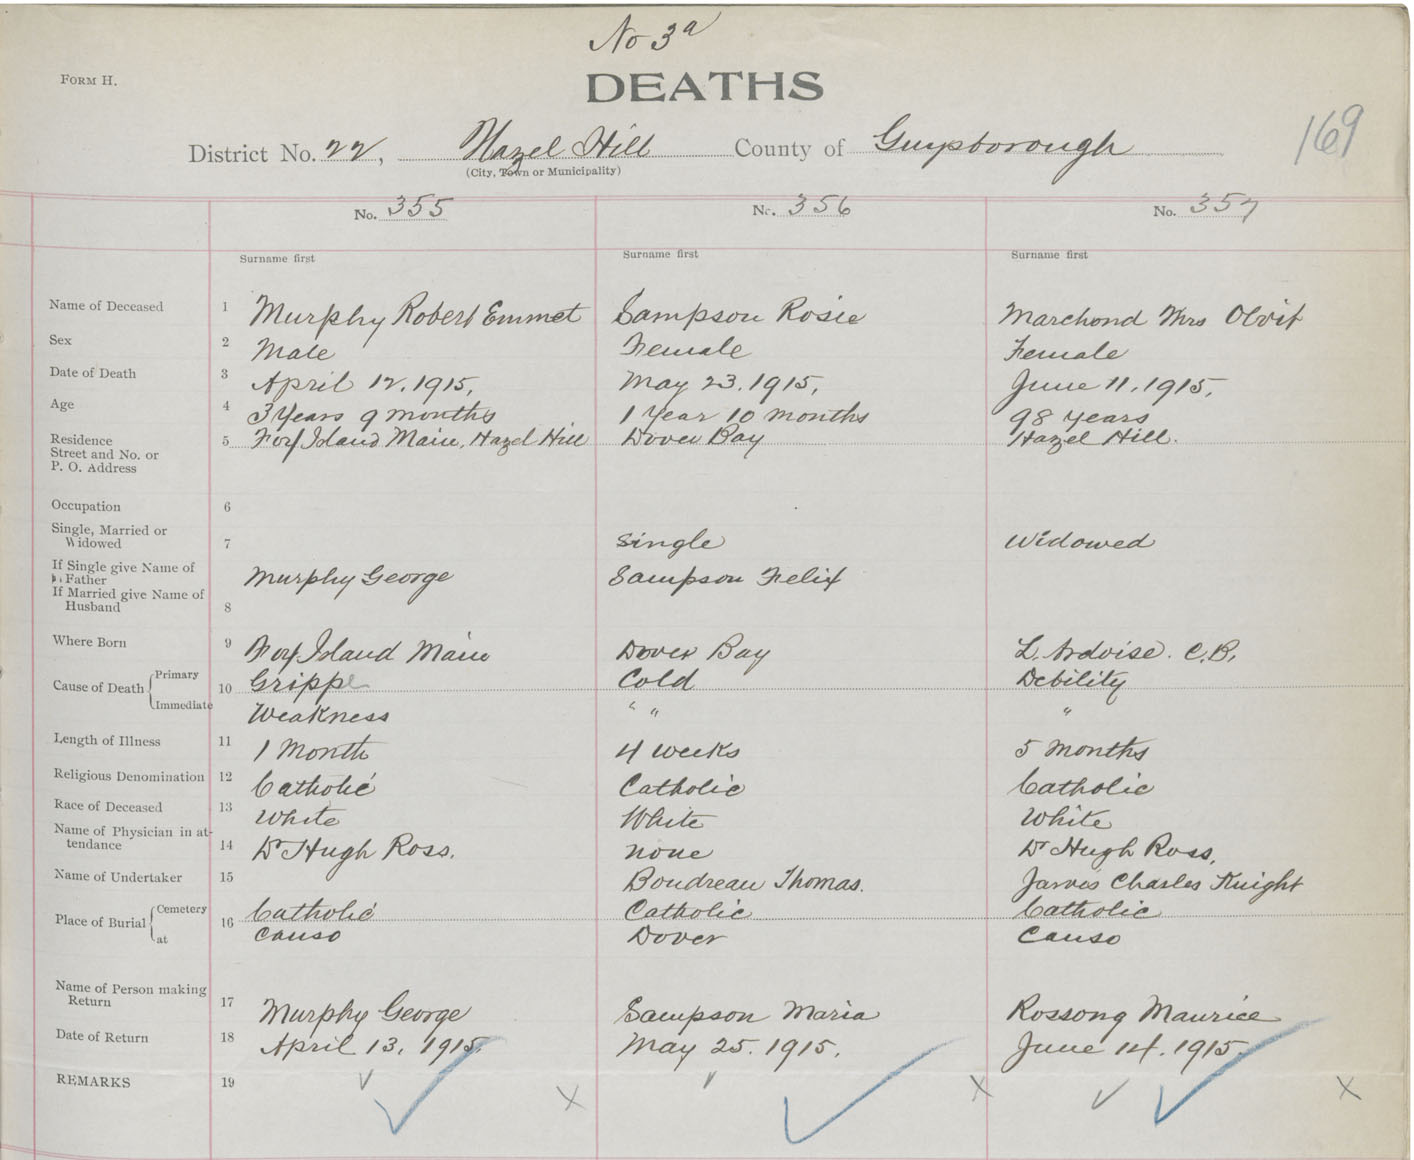 No 3a
FORM H.
DEATHS
169
District No. 22, Hazel Hill County of Guysborough
(City, Town or Municipality)
No. 355 No. 356 No. 357
Surname first Surname first Surname first
Name of Deceased 1 Murphy Robert Emmet Sampson Rosie Marchond Mrs Olvit
Sex 2 Male Female Female
Date of Death 3 April 12, 1915, May 23, 1915, June 11, 1915,
Age 4 3 Years 9 months 1 Year 10 months 98 years
Residence 5 Fox Island Main, Hazel Hill Dover Bay Hazel Hill.
Street and No. or
P. O. Address
Occupation 6
Single, Married or
Widowed 7 Single Widowed
If Single give Name of
Father Murphy George Sampson Felix
If Married give Name of
Husband 8
Where Born 9 Fox Island Main Dover Bay L. Ardoise. C.B.
Cause of Death Primary 10 Grippe Cold Debility
Immediate Weakness " " "
Length of Illness 11 1 Month 4 weeks 5 months
Religious Denomination 12 Catholic Catholic Catholic
Race of Deceased 13 White White White
Name of Physician in at-
tendance 14 Dr Hugh Ross. none Dr Hugh Ross,
Name of Undertaker 15 Boudreau Thomas. Jarvis Charles Knight
Place of Burial Cemetery 16 Catholic Catholic Catholic
at Canso Dover Canso
Name of Person making
Return 17 Murphy George Sampson Maria Rossong Maurice
Date of Return 18 April 13, 1915. May 25. 1915. June 14. 1915.
REMARKS 19